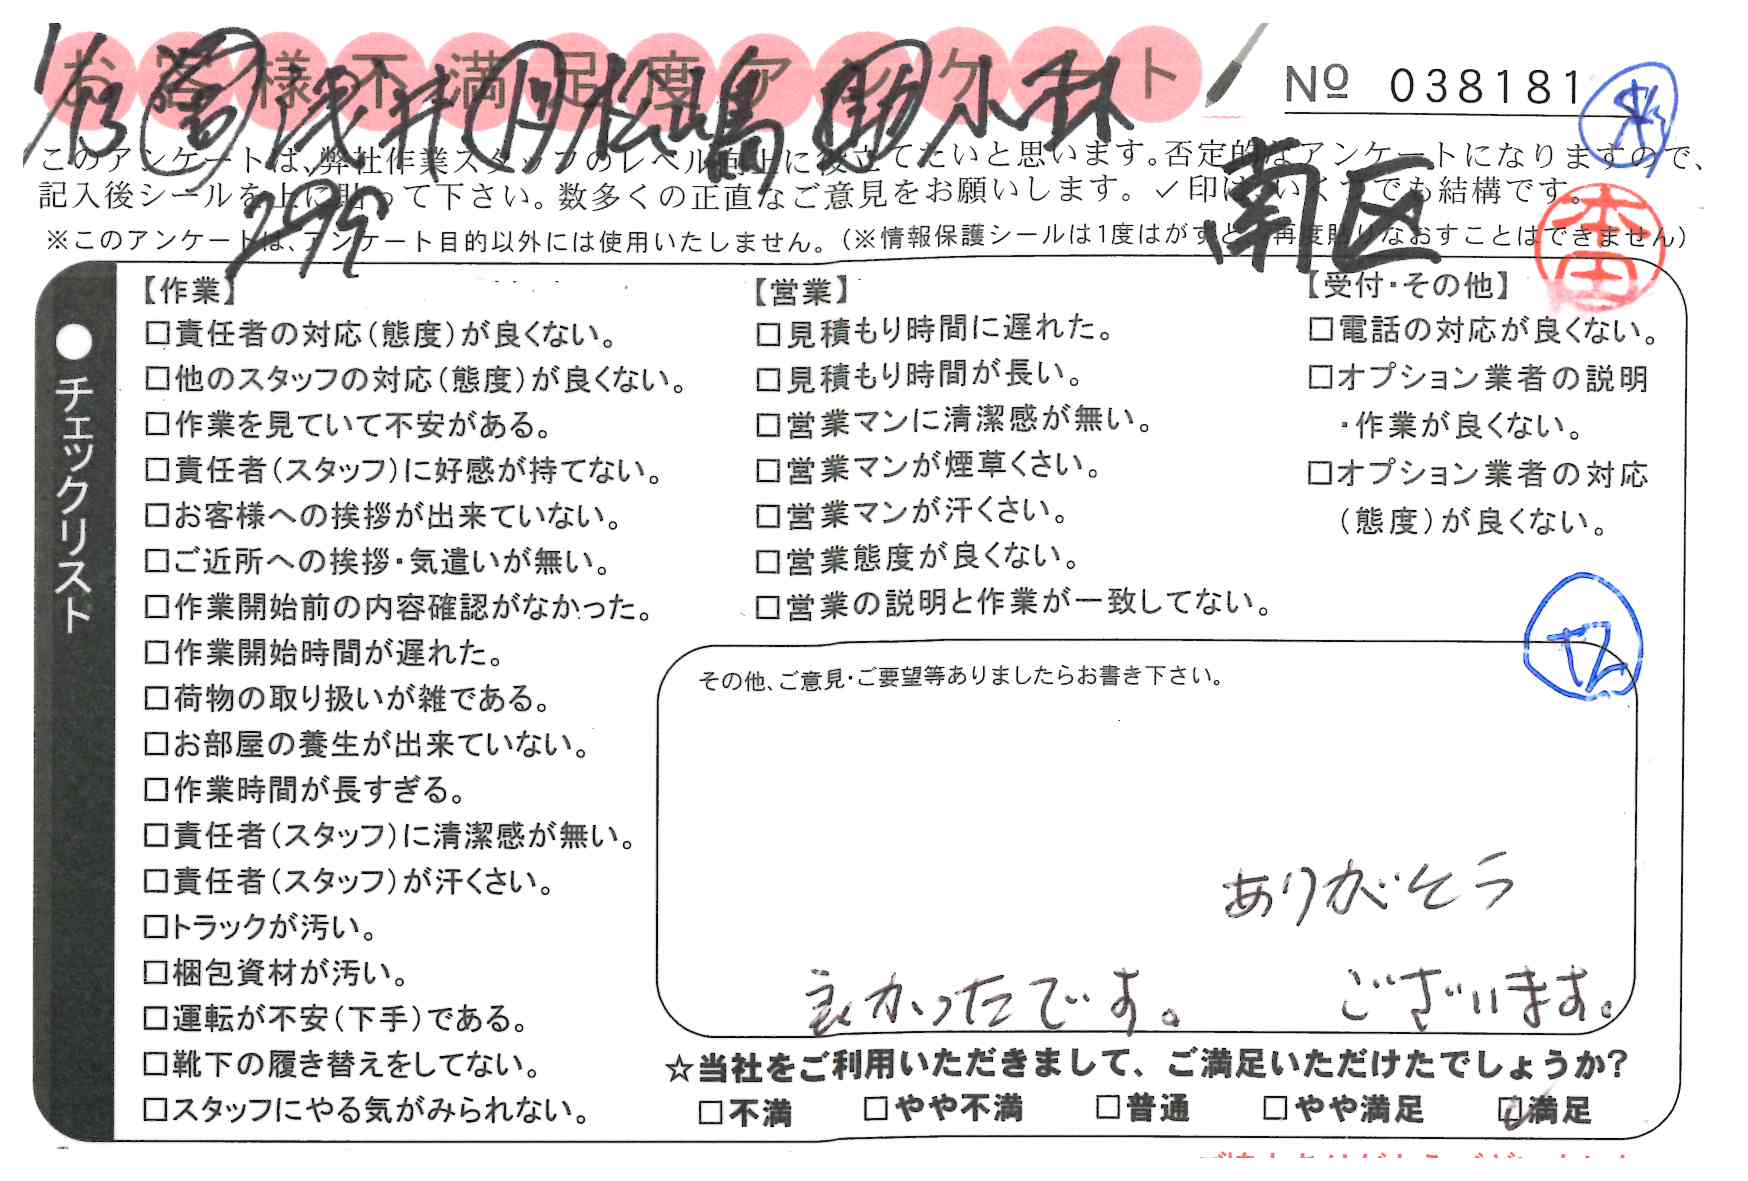 お客様不満足度アンケート
浅井 松嶋 小林
№ 038181
このアンケートは、弊社作業スタッフのレベル向上に役立てたいと思います。否定的なアンケートになりますので、
記入後シールを上に貼って下さい。数多くの正直なご意見をお願いします。✓印はいくつでも結構です。
南区
※このアンケートは、アンケート目的以外には使用いたしません。(※情報保護シールは1度はがすと、再度貼りなおすことはできません)
本田
●チェックリスト
【作業】
□責任者の対応(態度)が良くない。
□他のスタッフの対応(態度)が良くない。
□作業を見ていて不安がある。
□責任者(スタッフ)に好感が持てない。
□お客様への挨拶が出来ていない。
□ご近所への挨拶・気遣いが無い。
□作業開始前の内容確認がなかった。
□作業開始時間が遅れた。
□荷物の取り扱いが雑である。
□お部屋の養生が出来ていない。
□作業時間が長すぎる。
□責任者(スタッフ)に清潔感が無い。
□責任者(スタッフ)が汗くさい。
□トラックが汚い。
□梱包資材が汚い。
□運転が不安(下手)である。
□靴下の履き替えをしてない。
□スタッフにやる気がみられない。
【営業】
□見積もり時間に遅れた。
□見積もり時間が長い。
□営業マンに清潔感が無い。
□営業マンが煙草くさい。
□営業マンが汗くさい。
□営業態度が良くない。
□営業の説明と作業が一致してない。
【受付・その他】
□電話の対応が良くない。
□オプション業者の説明
・作業が良くない。
□オプション業者の対応
(態度)が良くない。
その他、ご意見・ご要望等ありましたらお書き下さい。
良かったです。
ありがとう
ございます。
☆当社をご利用いただきまして、ご満足いただけたでしょうか?
□不満 □やや不満 □普通 □やや満足 ☑満足